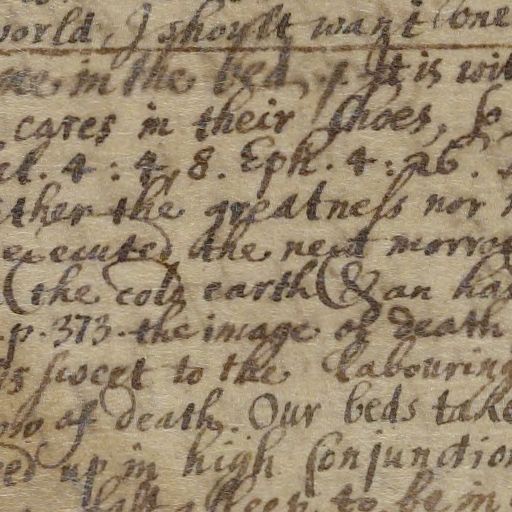 world, I shoult want one
me in the bed, p. It is wil
cares in their shoes, so
el. 4: 4, 8. Eph. 4: 26.
ther the greatness nor
executed the next morrow
(the cold earth & an ha
.p. 373. the image of death
is sweet to the labouring
ow of death. Our beds take
ed up in high Conjunction
to be in